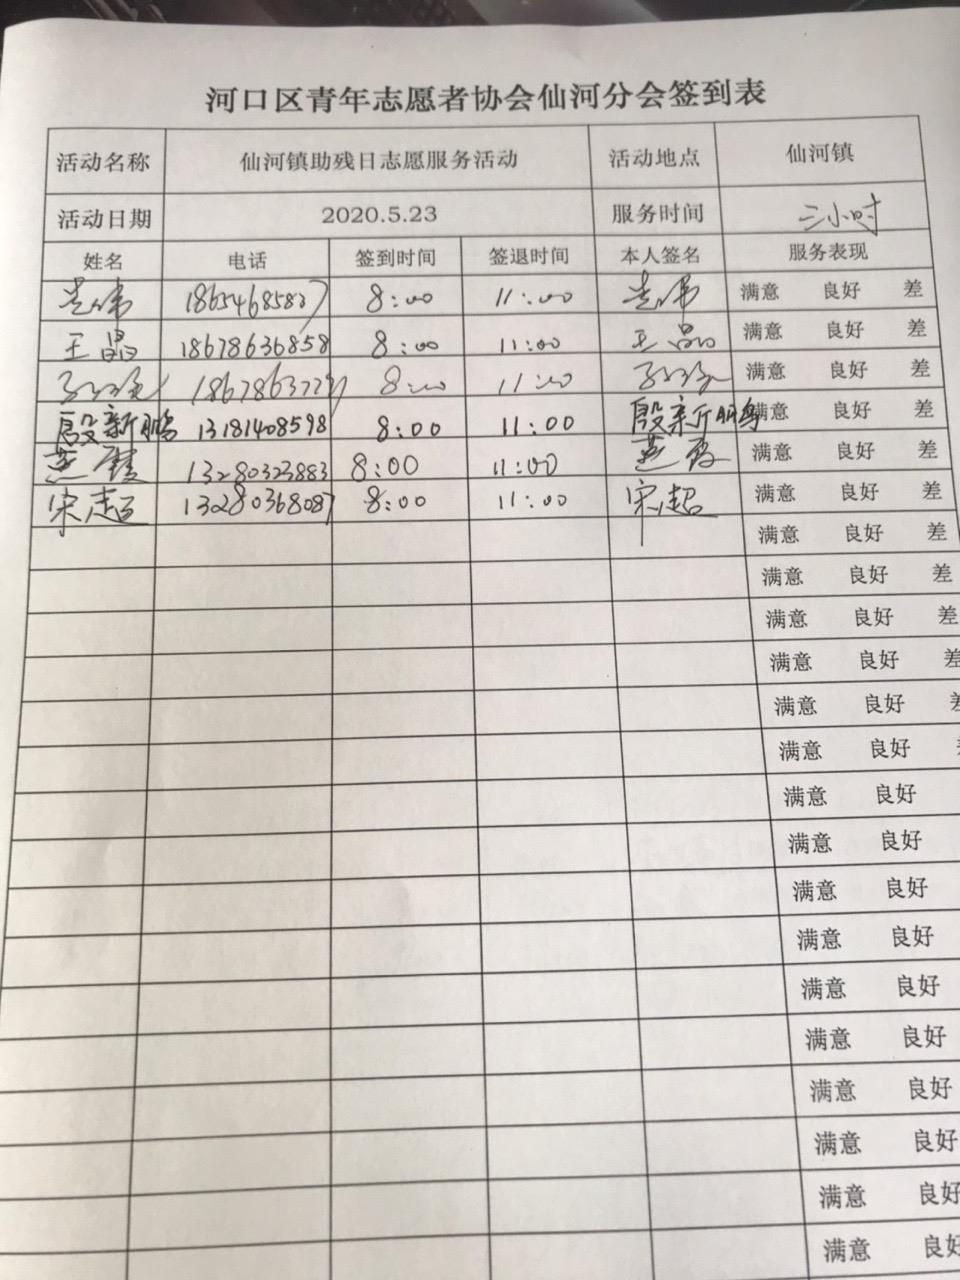 河口区青年志愿者协会仙河分会签到表
活动名称 仙河镇助残日志愿服务活动 活动地点 仙河镇
活动日期 2020.5.23 服务时间 三小时
姓名 电话 签到时间 签退时间 本人签名 服务表现
18654685837 8:00 11:00 满意 良好 差
王晶 18678636858 8:00 11:00 王晶 满意 良好 差
8:00 11:00 满意 良好 差
殷新鹏 13181408598 8:00 11:00 殷新鹏 满意 良好 差
燕霞 13280323883 8:00 11:00 燕霞 满意 良好 差
宋超 13280368087 8:00 11:00 宋超 满意 良好 差
满意 良好 差
满意 良好 差
满意 良好 差
满意 良好 差
满意 良好 差
满意 良好
满意 良好
满意 良好
满意 良好
满意 良好
满意 良好
满意 良好
满意 良好
满意 良好
满意 良好
满意 良好